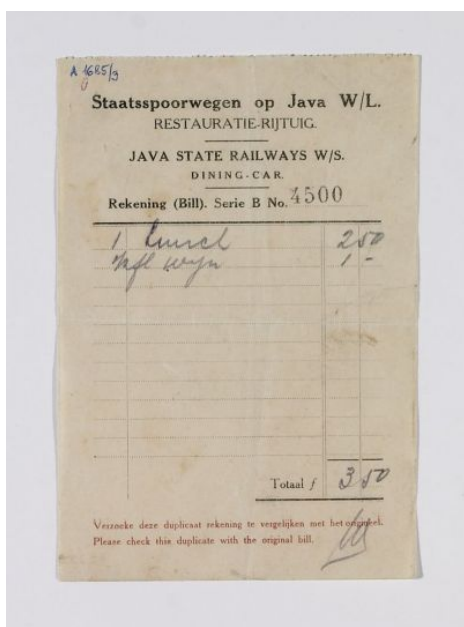 A 1685/9
Staatsspoorwegen op Java W/L.
RESTAURATIE-RIJTUIG.
JAVA STATE RAILWAYS W/S.
DINING-CAR.
Rekening (Bill). Serie B No. 4500
1 Lunch 2 50
½ fl wijn 1 -
Totaal f 3 50
Verzoeke deze duplicaat rekening te vergelijken met het origineel.
Please check this duplicate with the original bill.